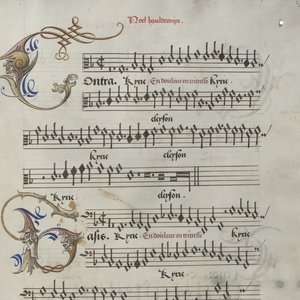 Noel bouldewijn.
Contra. Kyrie En douleur en tristesse Kyrie
eleyson
Kyrie eleyson
Kyrie eleyson.
Basis. Kyrie. En douleur en tristesse Kyrie
Kyrie